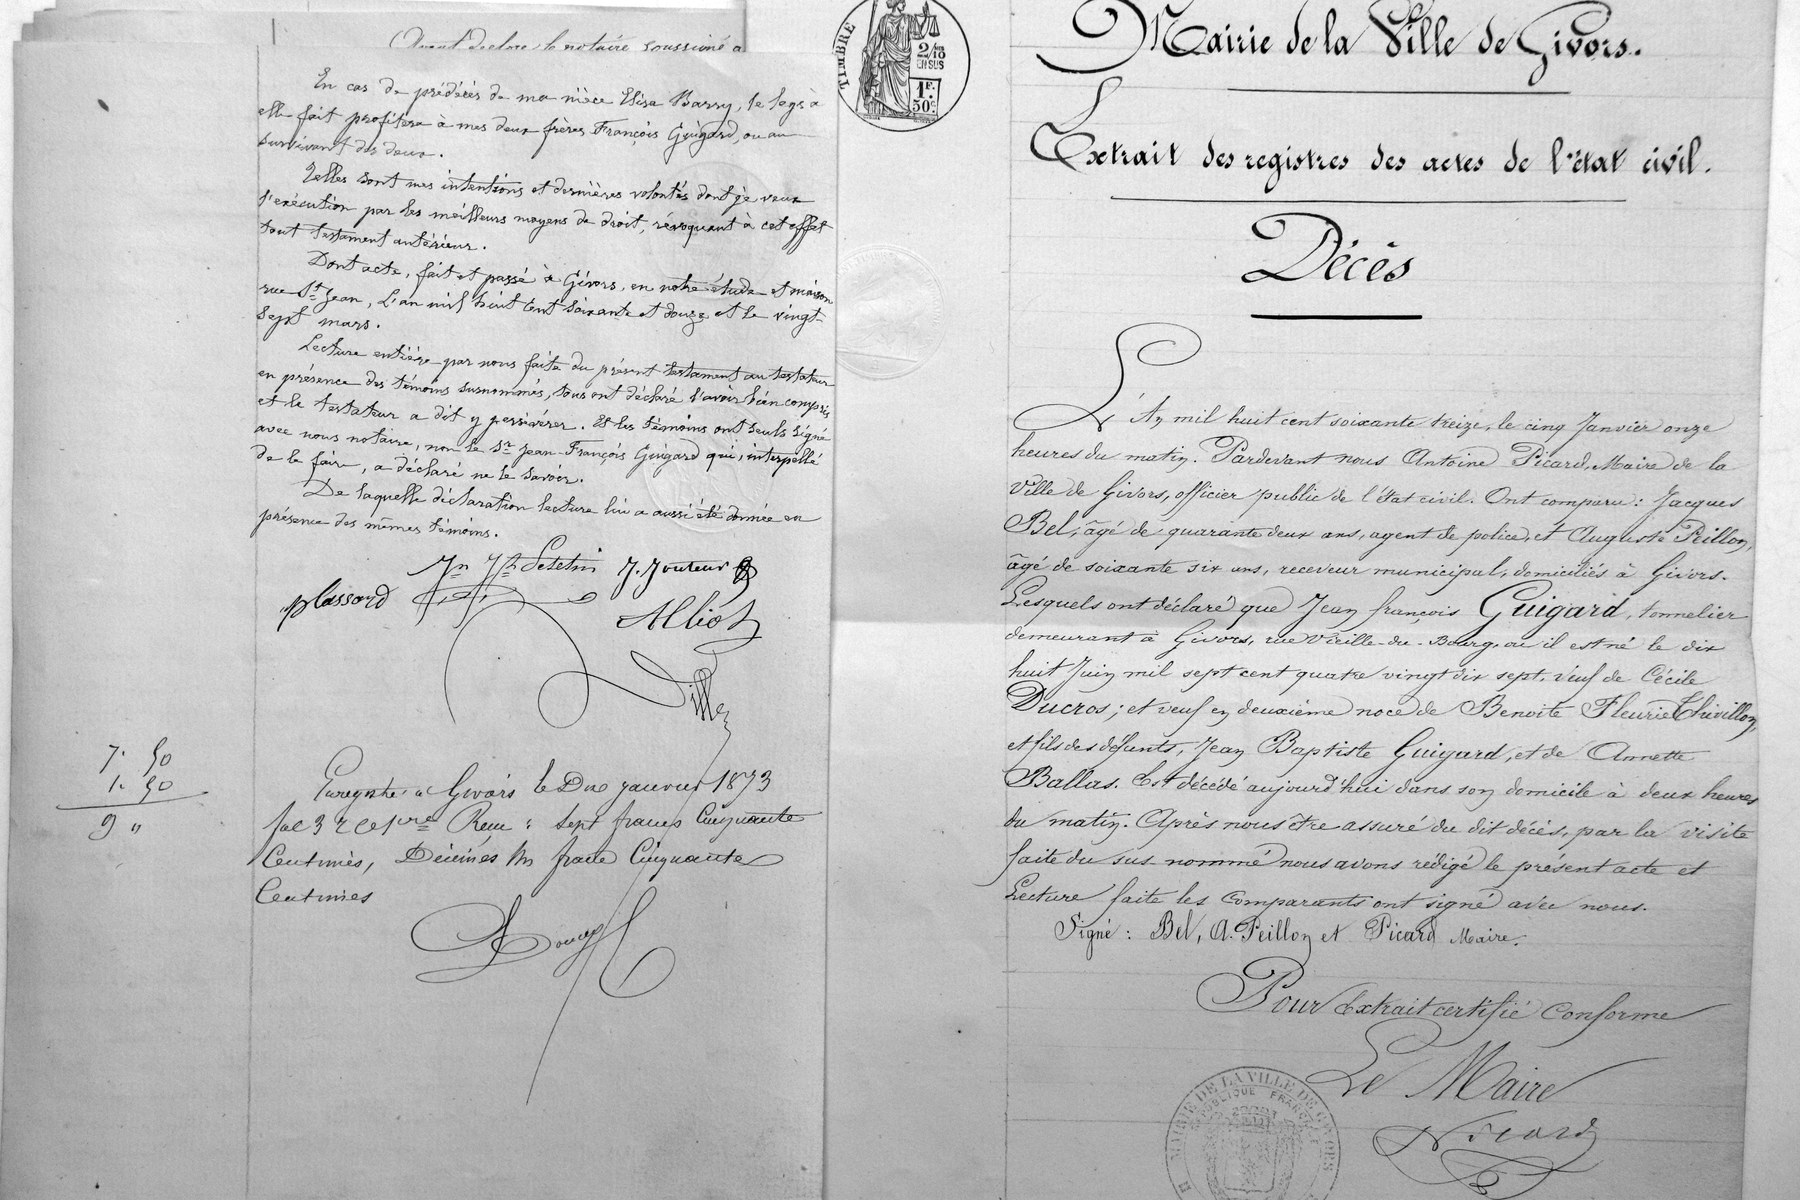 Avant declare le notaire soussigné a
En cas de prédécès de ma nièce Elisa Barry, le legs à
elle fait profitera à mes deux frères François Guigard, ou au
survivant des deux.
Telles sont mes intentions et dernières volontés dont je veux
l'exécution par les meilleurs moyens de droit, révoquant à cet effet
tout testament antérieur.
Dont acte, fait et passé à Givors, en notre étude et maison
rue St Jean, L'an mil huit cent soixante et douze et le vingt-
sept mars.
Lecture entière par nous faite du présent testament au testateur
en présence des témoins susnommés, tous ont déclaré l'avoir bien compris
et le testateur a dit y persévérer. Et les témoins ont seuls signé
avec nous notaire, non le Sr Jean-François Guigard qui, interpellé
de le faire, a déclaré ne le savoir.
De laquelle déclaration lecture lui a aussi été donnée en
présence des mêmes témoins.
J. Jouteur
Plassard
Alliot
7. 50
1. 50
9 "
Enregistré à Givors le Dix janvier 1873
fol 3 Reçu : sept francs Cinquante
Centimes, Décimes Un franc Cinquante
Centimes
TIMBRE
2/10
EN SUS
1 F.
50 c.
Mairie de la Ville de Givors.
Extrait des registres des actes de l'état civil.
Décès
L'An mil huit cent soixante treize, le cinq Janvier onze
heures du matin. Pardevant nous Antoine Picard, Maire de la
Ville de Givors, officier public de l'état civil. Ont comparu : Jacques
Bel, âgé de quarante deux ans, agent de police, et Auguste Peillon,
âgé de soixante six ans, receveur municipal, domiciliés à Givors.
Lesquels ont déclaré que Jean françois Guigard, tonnelier
demeurant à Givors, rue Vieille-du-Bourg, où il est né le dix
huit Juin mil sept cent quatre vingt dix sept, veuf de Cécile
Ducros ; et veuf en deuxième noce de Benoite Fleurie Thivillon,
et fils des défunts, Jean Baptiste Guigard, et de Annette
Ballas. Est décédé aujourd'hui dans son domicile à deux heures
du matin. Après nous être assuré du dit décès, par la visite
faite du sus nommé nous avons rédigé le présent acte et
Lecture faite les comparants ont signé avec nous.
Signé : Bel, A. Peillon et Picard Maire.
Pour Extrait certifié conforme
Le Maire
Picard
MAIRIE DE LA VILLE DE GIVORS
RÉPUBLIQUE FRANÇAISE